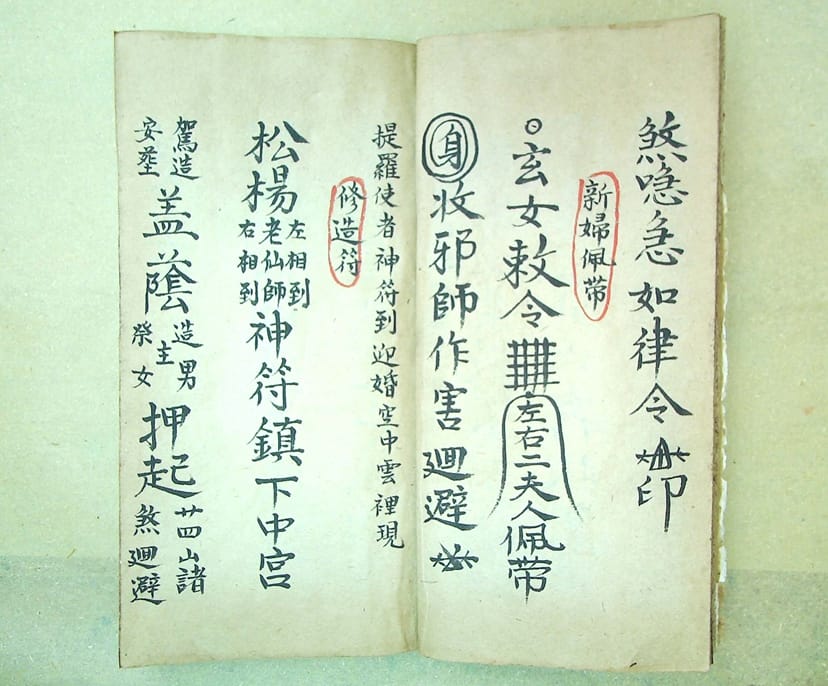 煞唸急如律令印
新婦佩帶
玄女敕令左右二夫人佩带
身收邪師作害廻避
提羅使者神符到迎婚空中雲裡現
修造符
松楊左相到老仙師右相到神符鎮下中宮
駕造安葬蓋蔭造男主祭女押起廿四山諸煞廻避